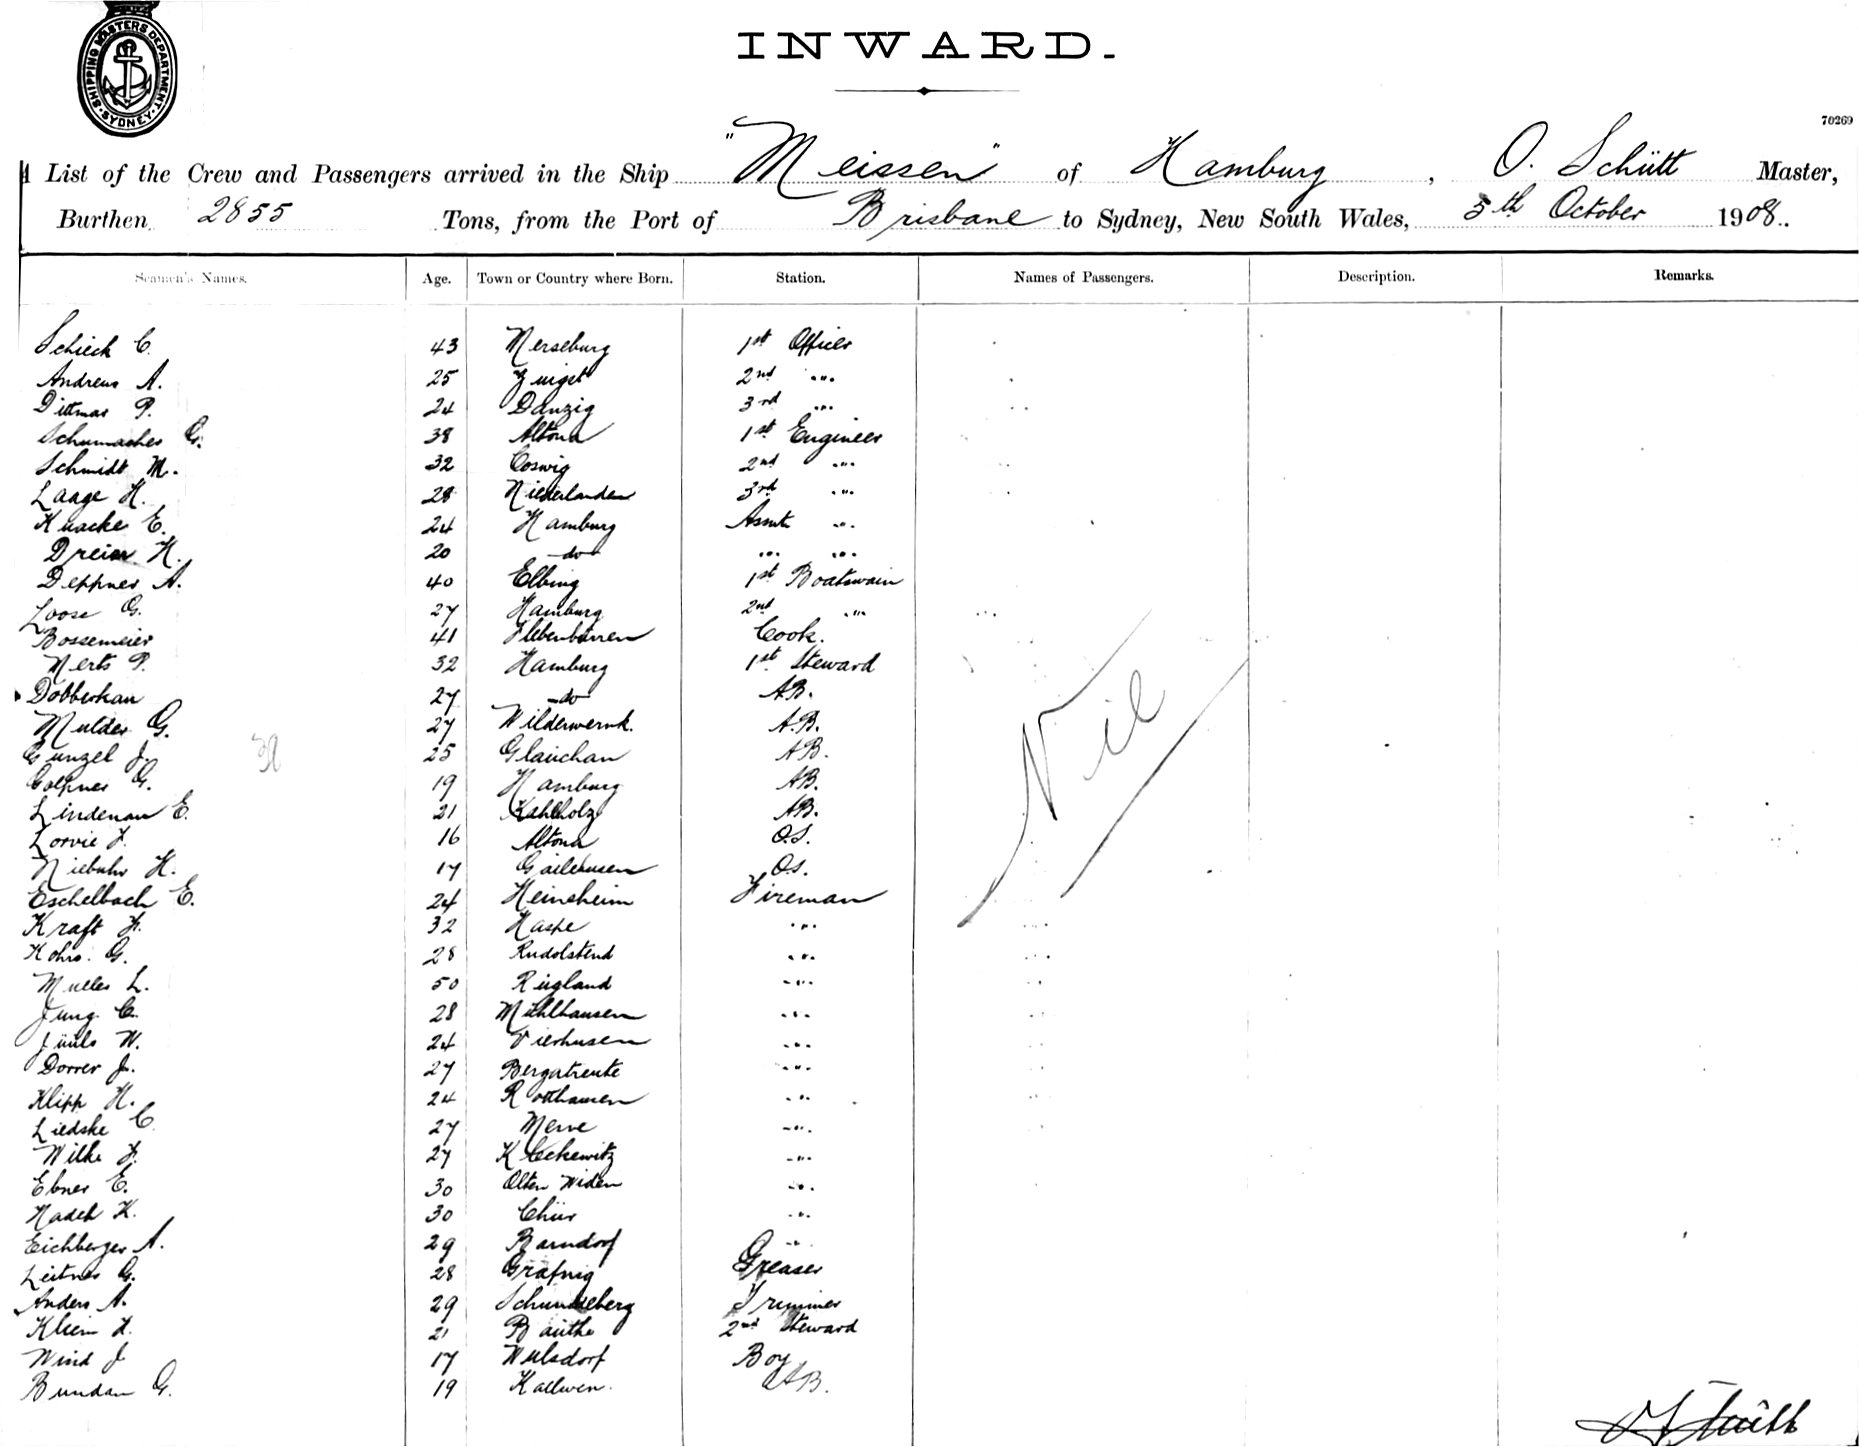 SHIPPING MASTERS DEPARTMENT · SYDNEY ·
INWARD.
70269
A List of the Crew and Passengers arrived in the Ship "Meissen" of Hamburg, O. Schütt Master,
Burthen 2855 Tons, from the Port of Brisbane to Sydney, New South Wales, 5th October 1908.
Seamen's Names. Age. Town or Country where Born. Station. Names of Passengers. Description. Remarks.
Schieck C. 43 Merseburg 1st Officer
Andrews A. 25 Zuigst 2nd "
Dittmar P. 24 Danzig 3rd "
Schumacher G. 38 Altona 1st Engineer
Schmidt M. 32 Coswig 2nd "
Laage H. 28 Niederlanden 3rd "
Knacke E. 24 Hamburg Asst "
Dreier H. 20 -do- " "
Deppner A. 40 Elbing 1st Boatswain
Loose G. 27 Hamburg 2nd "
Bossemeier 41 Cook.
Nerts P. 32 Hamburg 1st Steward
Dobberkau 27 -do- AB.
Mulder G. 27 Wilderwernk. A.B.
Gunzel J. 25 Glauchau AB.
39
Golpner G. 19 Hamburg AB.
Lindenau E. 21 Kahlholz AB.
Lorvie F. 16 Altona O.S.
Niebuhr H. 17 Gailehusen OS.
Nil
Eschelbach E. 24 Heinsheim Fireman
Kraft F. 32 Haspe "
Kohrs. G. 28 Rudolstend "
Muller L. 50 Rugland "
Jung C. 28 Mühlhausen "
Jüuls W. 24 Vierhusen "
Dorrer J. 27 Bergatreute "
Klipp H. 24 Rotthausen "
Liedske C. 27 Merve "
Wilke F. 27 Kleckewitz "
Ebner E. 30 Olten Widen "
Nadek K. 30 Chür "
Eichberger A. 29 Barndorf "
Leitner G. 28 Grafnig Greaser
Anders A. 29 Trimmer
Klein F. 21 Bauthe 2nd Steward
Wind J 17 Wulsdorf Boy
Bundan G. 19 Kallwen. AB.
O Schütt